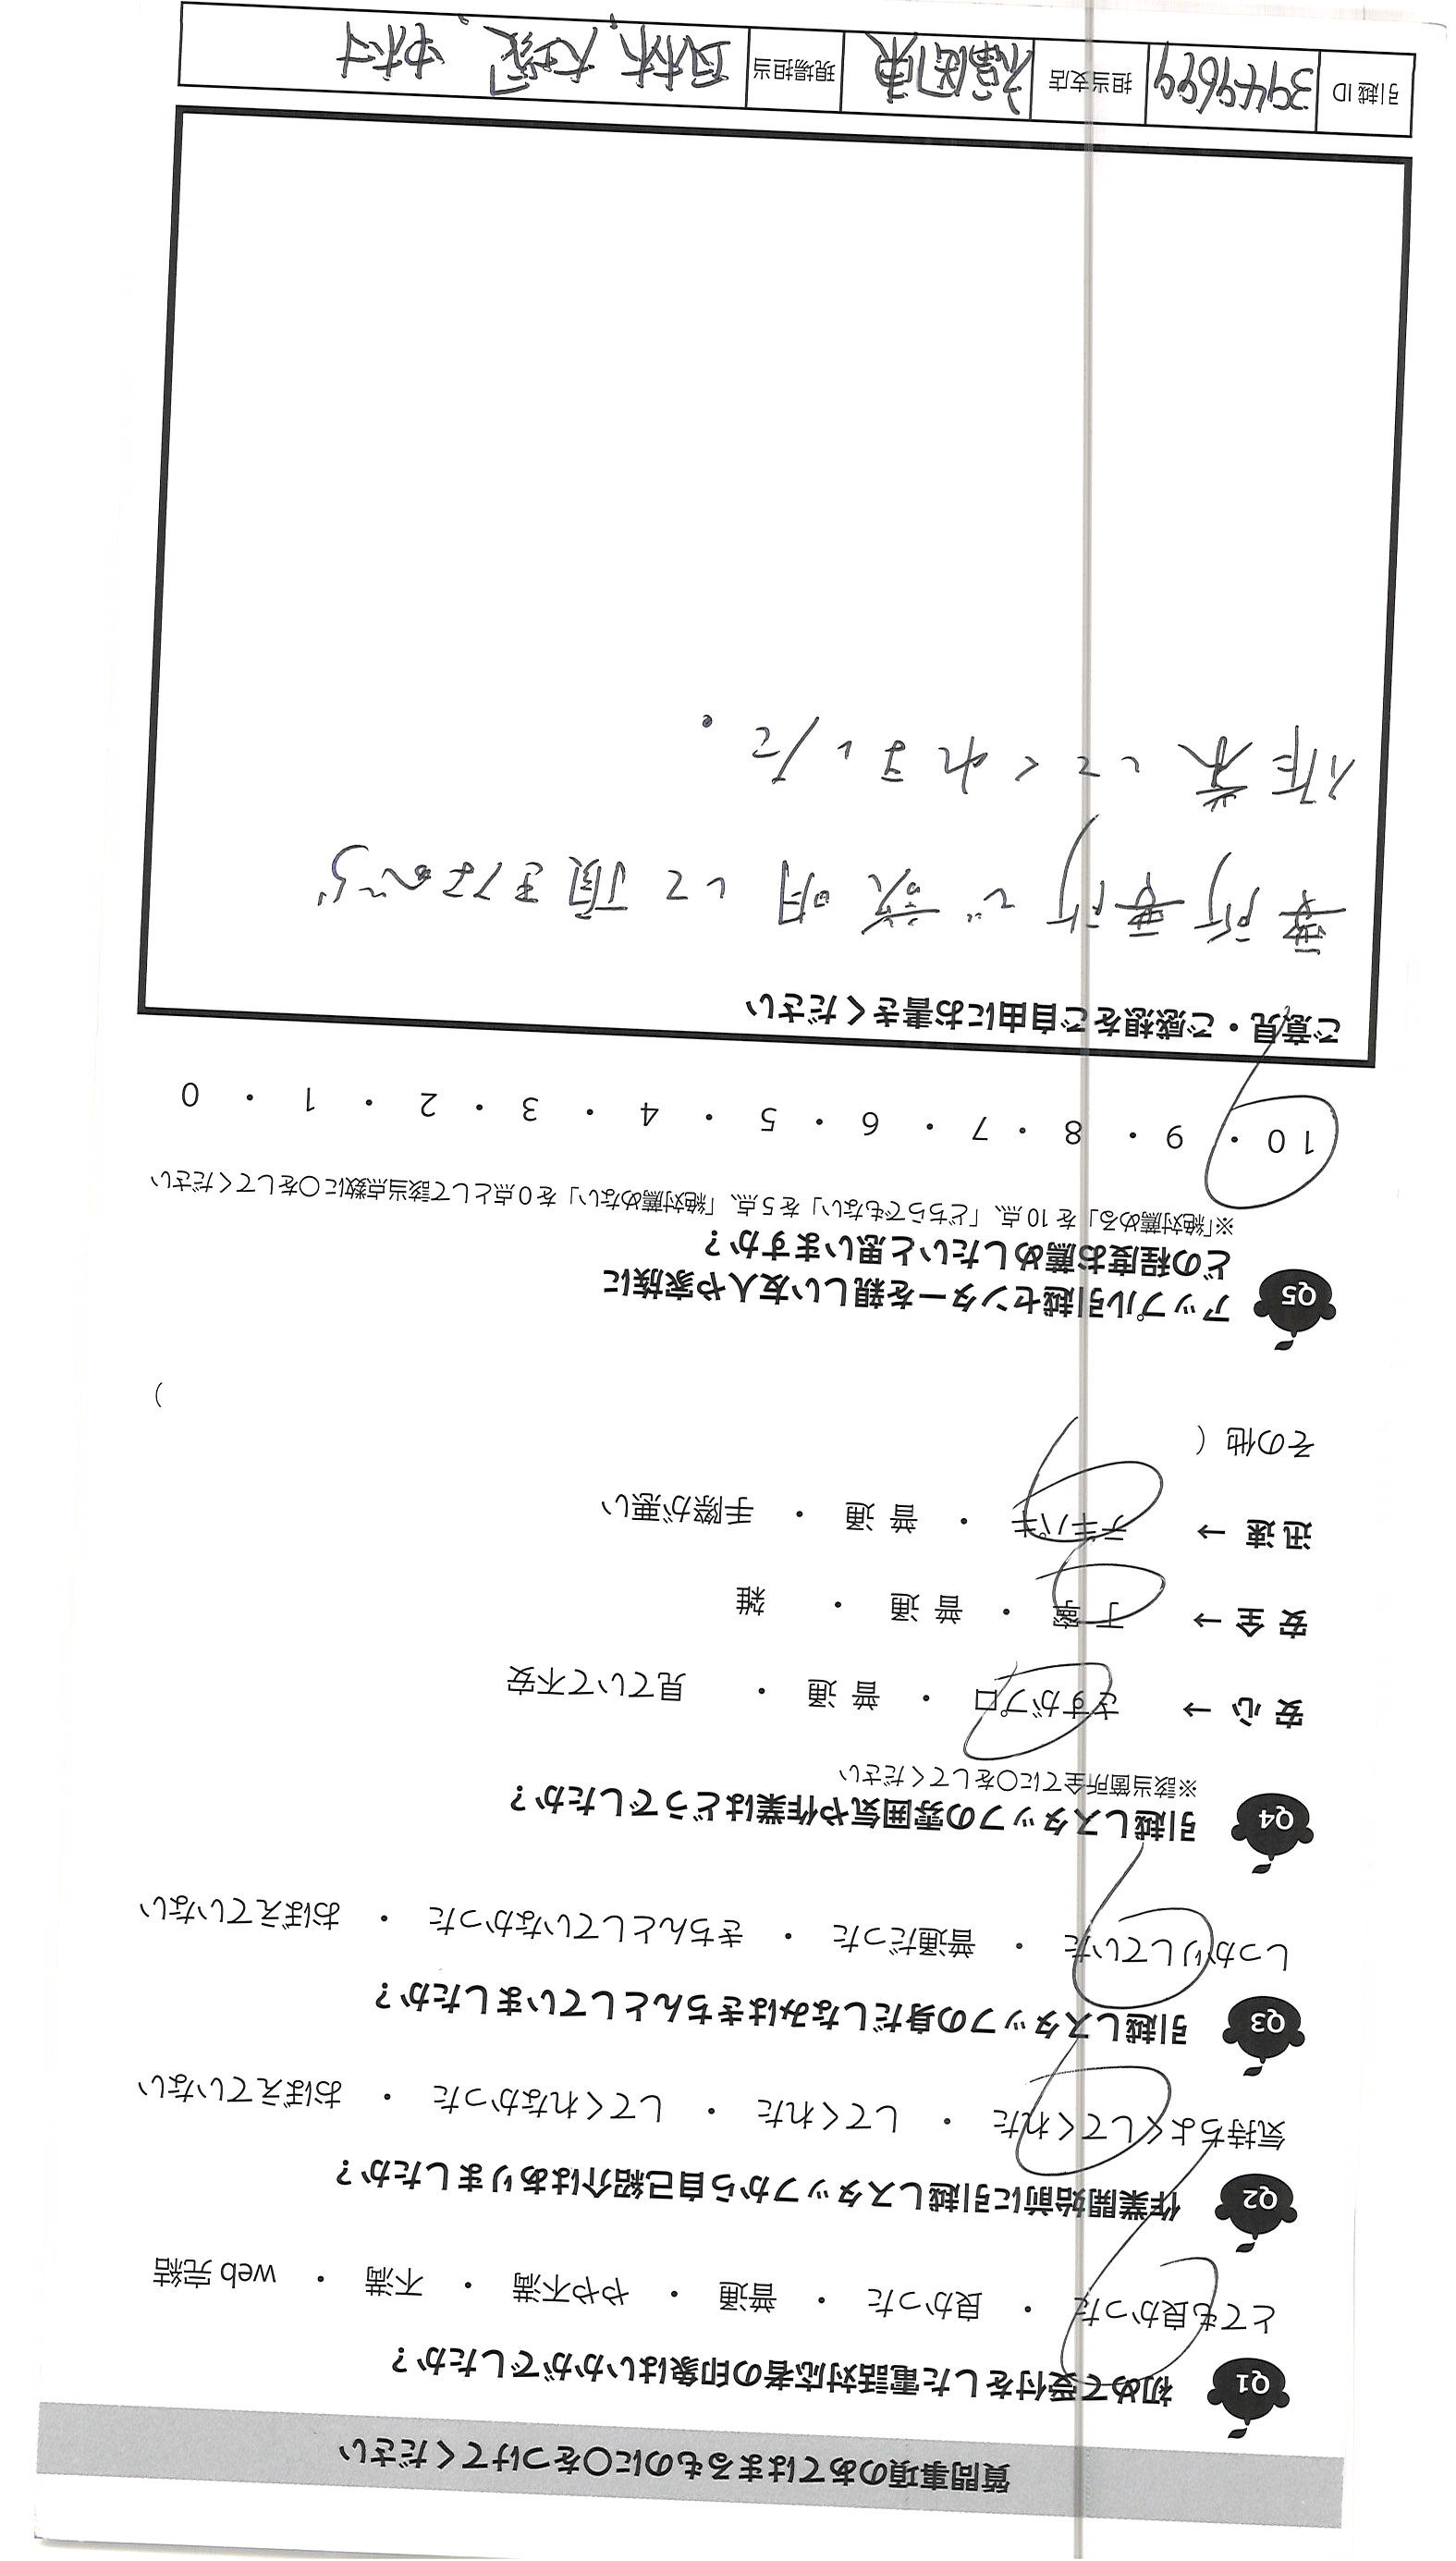 質問事項のあてはまるものに〇をつけてください
Q1 初めて受付をした電話対応者の印象はいかがでしたか？
とても良かった ・ 良かった ・ 普通 ・ やや不満 ・ 不満 ・ web 完結
Q2 作業開始前に引越しスタッフから自己紹介はありましたか？
気持ちよくしてくれた ・ してくれた ・ してくれなかった ・ おぼえていない
Q3 引越しスタッフの身だしなみはきちんとしていましたか？
しっかりしていた ・ 普通だった ・ きちんとしていなかった ・ おぼえていない
Q4 引越しスタッフの雰囲気や作業はどうでしたか？
※該当箇所全てに〇をしてください
安 心 → さすがプロ ・ 普 通 ・ 見ていて不安
安 全 → 丁 寧 ・ 普 通 ・ 雑
迅 速 → テキパキ ・ 普 通 ・ 手際が悪い
その他（ ）
Q5 アップル引越センターを親しい友人や家族に
どの程度お薦めしたいと思いますか？
※「絶対薦める」を 10 点、「どちらでもない」を 5 点、「絶対薦めない」を 0 点として該当点数に〇をしてください
10 ・ 9 ・ 8 ・ 7 ・ 6 ・ 5 ・ 4 ・ 3 ・ 2 ・ 1 ・ 0
ご意見・ご感想をご自由にお書きください
要所要所で説明して頂きながら
作業してくれました.
引越 ID 3949699 担当支店 福岡東 現場担当 大塚、中村